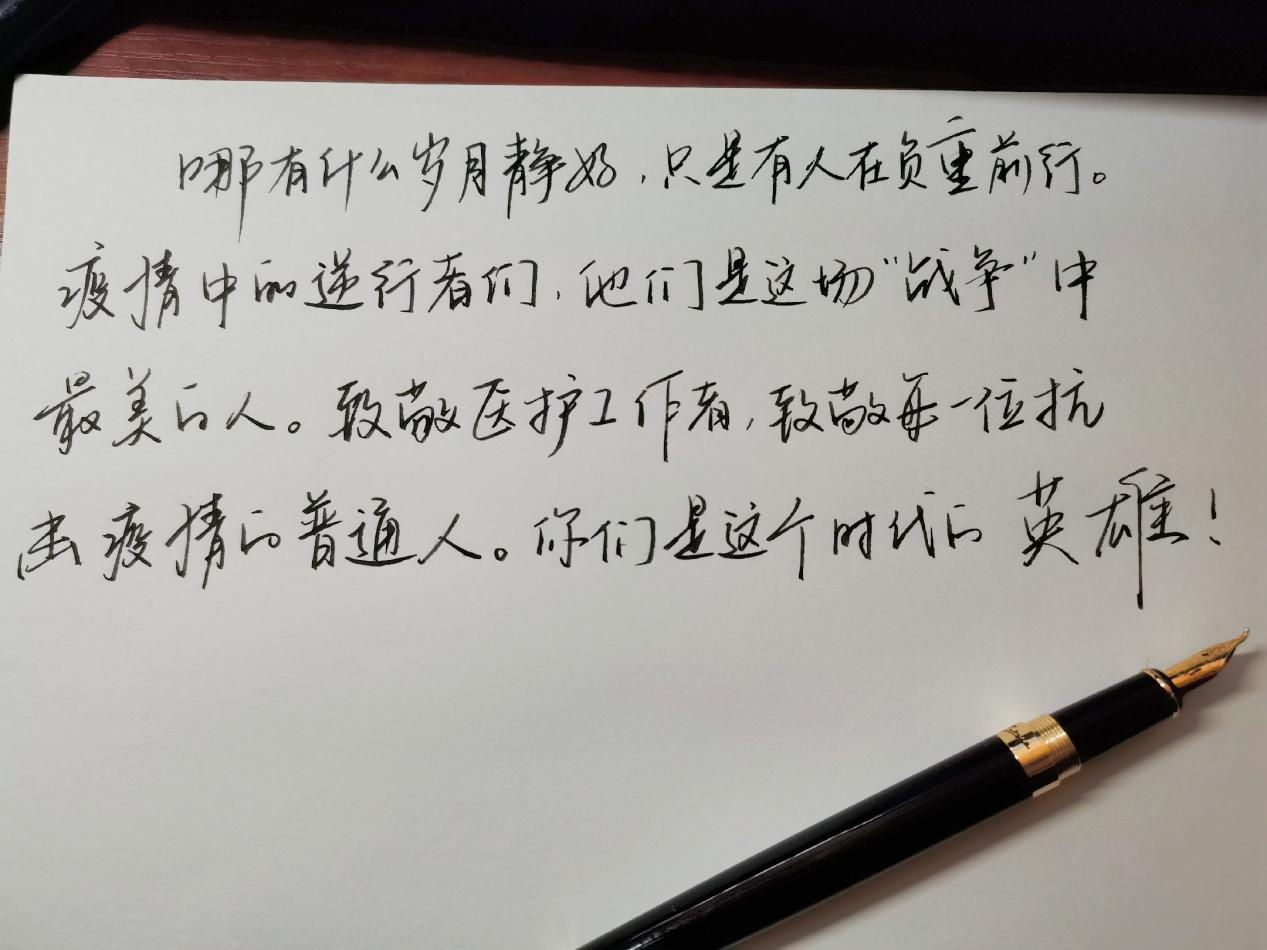 哪有什么岁月静好,只是有人在负重前行。
疫情中的逆行者们,他们是这场"战争"中
最美的人。致敬医护工作者,致敬每一位抗
击疫情的普通人。你们是这个时代的英雄!